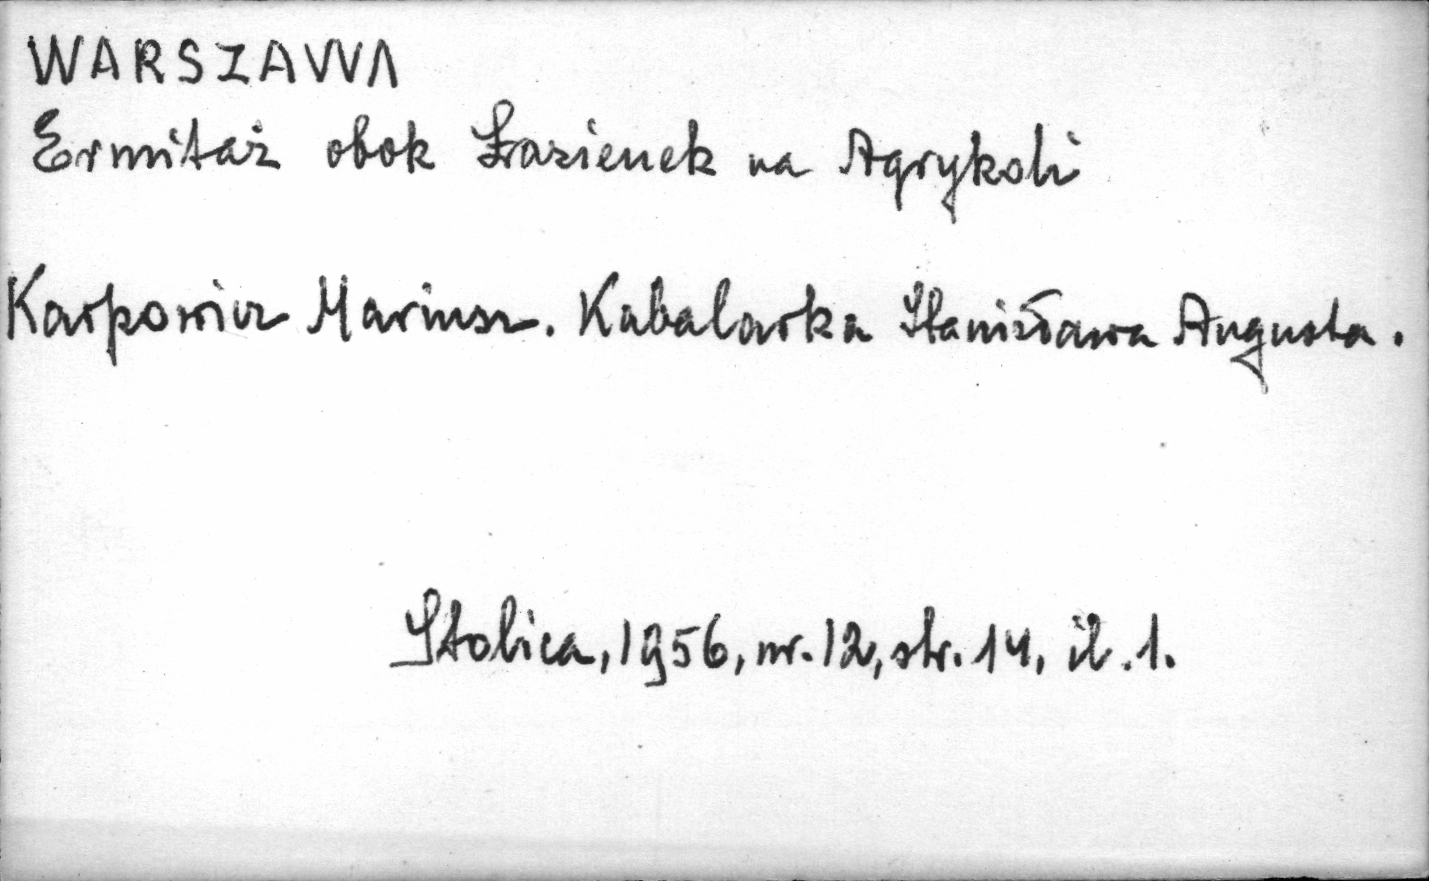 WARSZAWA
Ermitaż obok Łazienek na Agrykoli
Karpowicz Mariusz. Kabalarka Stanisława Augusta.
Stolica, 1956, nr. 12, str. 14, il. 1.